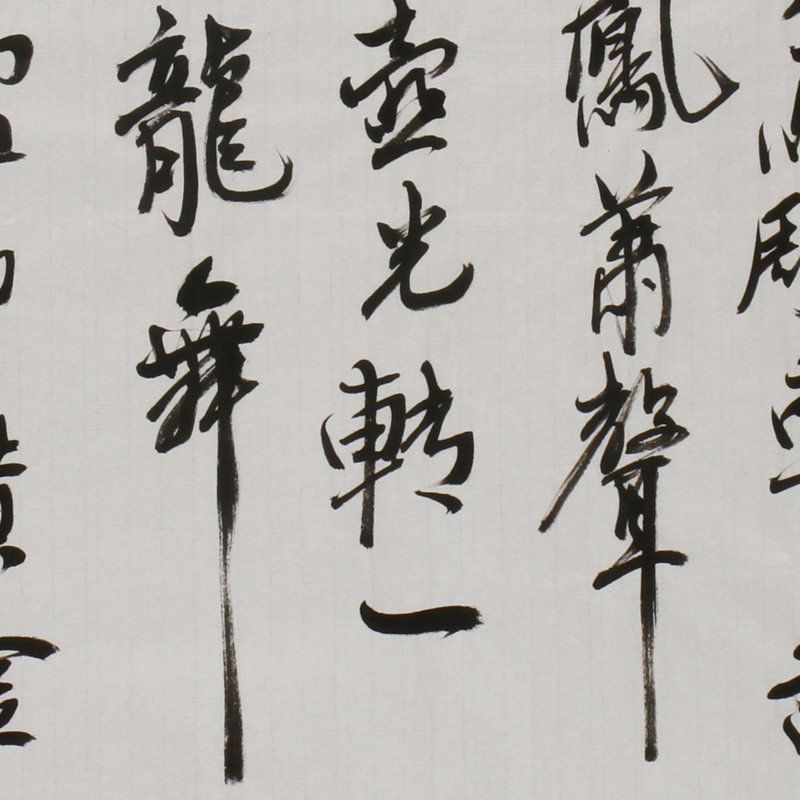 鳳簫聲
壺光轉一
龍舞
黃金